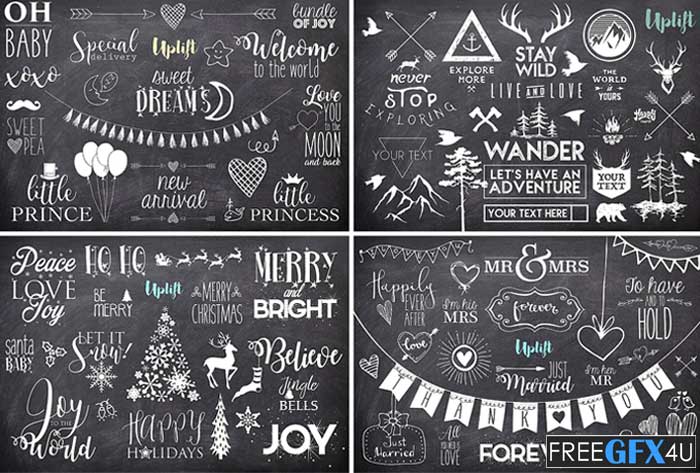 OH
BABY
xoxo
Special
delivery
Uplift
bundle
OF JOY
Welcome
to the world
sweet
DREAMS
Love
YOU
to the
MOON
and back
SWEET
PEA
little
PRINCE
new
arrival
little
PRINCESS
EXPLORE
MORE
STAY
WILD
Uplift
THE
WORLD
is
YOURS
never
STOP
EXPLORING
LIVE AND LOVE
YOUR TEXT
WANDER
LET'S HAVE AN
ADVENTURE
YOUR TEXT HERE
YOUR
TEXT
Peace
LOVE
Joy
HO HO
BE
MERRY
Uplift
MERRY
CHRISTMAS
MERRY
and
BRIGHT
santa
BABY!
LET IT
Snow!
Believe
Jingle
BELLS
Joy
TO THE
World
HAPPY
HOLIDAYS
JOY
Happily
EVER
AFTER
MR & MRS
I'm his
MRS
forever
To have
AND TO
HOLD
Love
Uplift
JUST
Married
I'm her
MR
THANK YOU
Just
Married
ALL
YOU NEED IS
LOVE
FOREV
FREEGFX4U